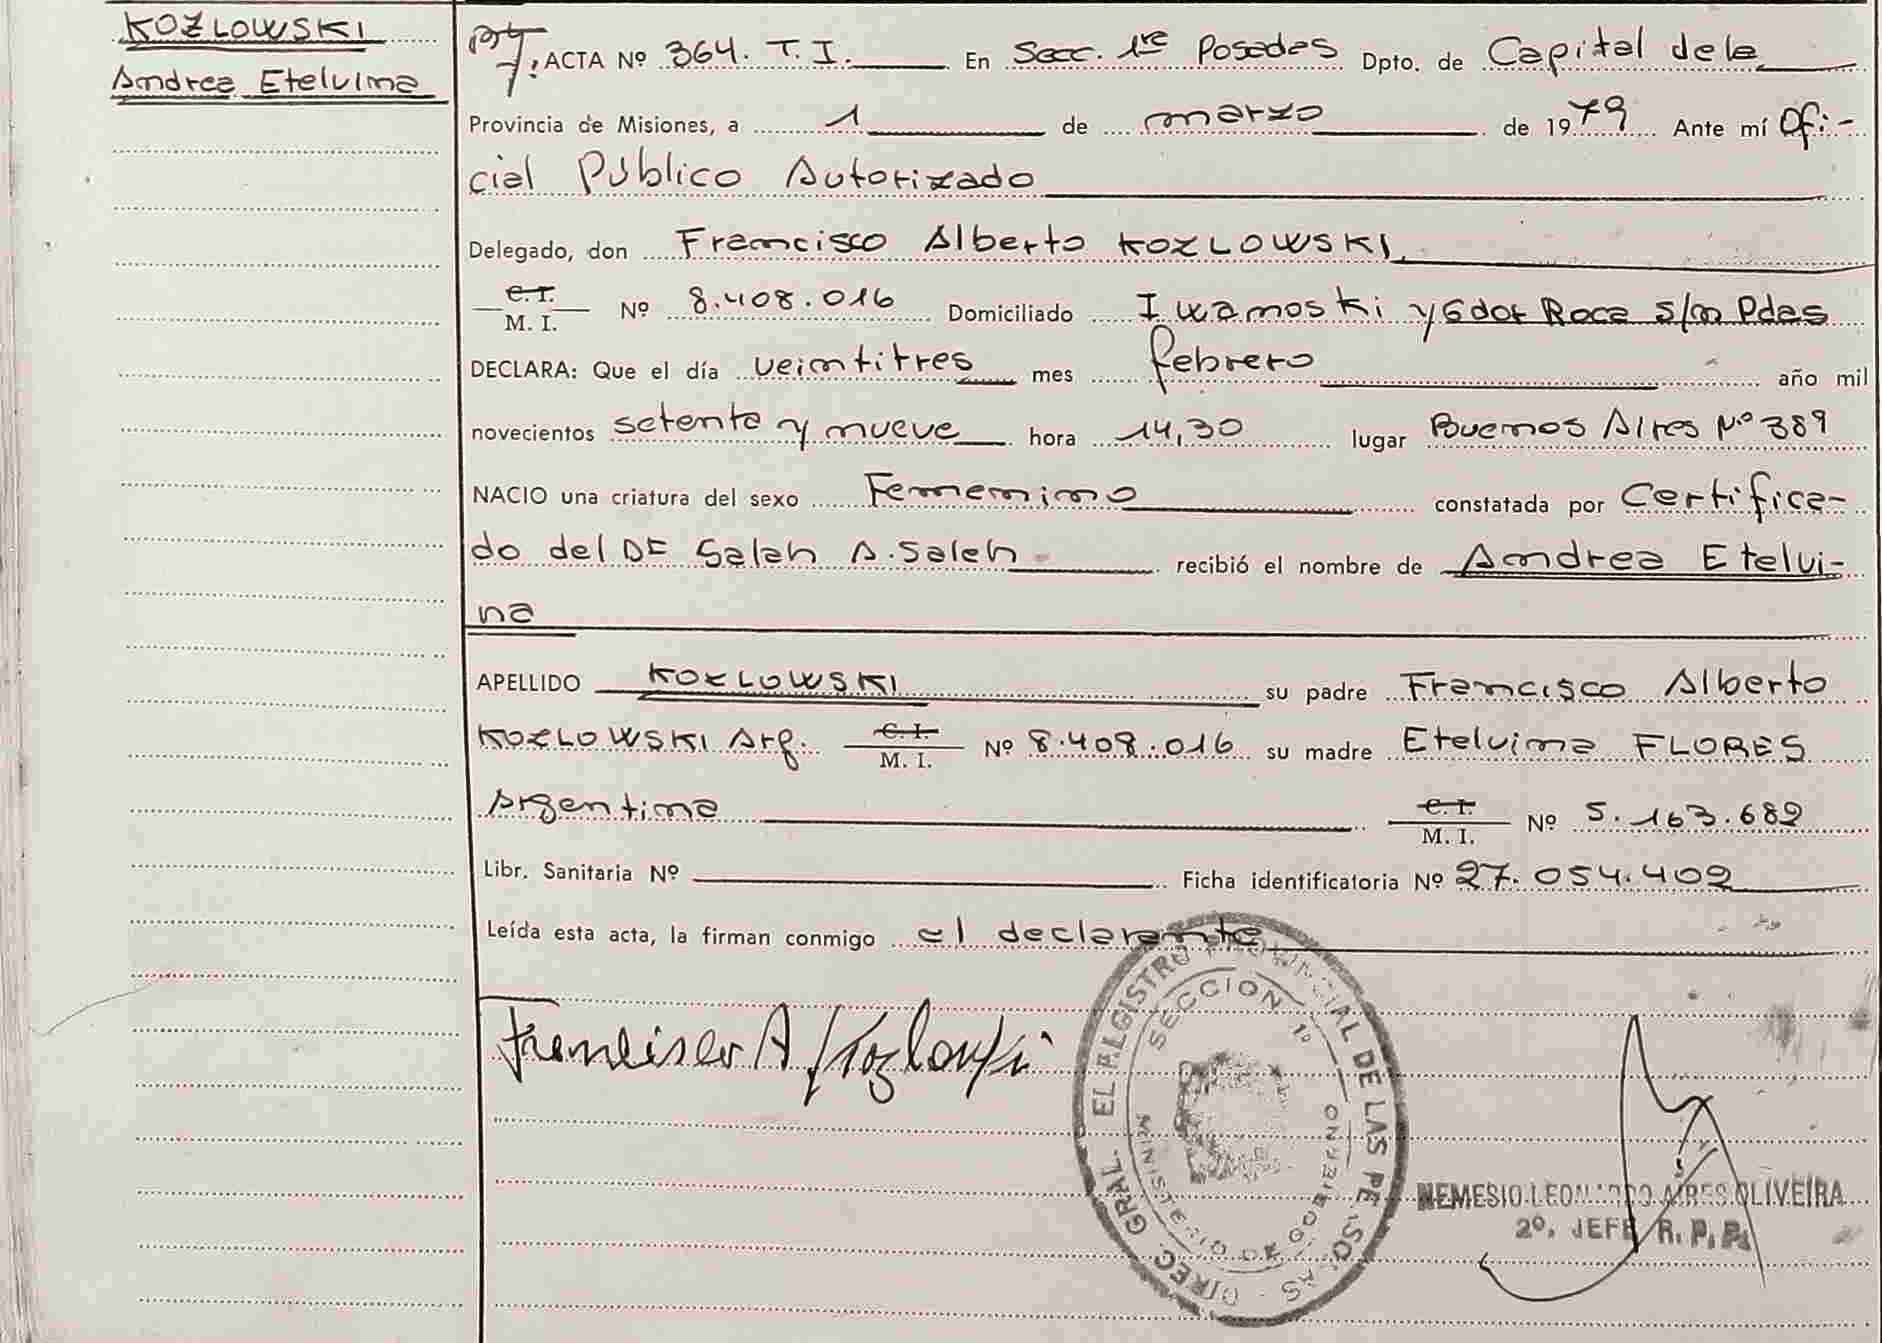 KOZLOWSKI
Andrea Etelvina
ACTA Nº 364. T. I. En Secc. 1re Posadas Dpto. de Capital de la
Provincia de Misiones, a 1 de marzo de 1979 Ante mí Ofi-
cial Público Autorizado
Delegado, don Francisco Alberto KOZLOWSKI,
C. I.
M. I. Nº 8.408.016 Domiciliado Iwanoski y Gdor Roca s/n Pdas
DECLARA: Que el día veintitres mes febrero año mil
novecientos setenta y nueve hora 14,30 lugar Buenos Aires Nº 389
NACIO una criatura del sexo Femenino constatada por Certifica-
do del Dr Salah A. Saleh recibió el nombre de Andrea Etelvi-
na
APELLIDO KOZLOWSKI su padre Francisco Alberto
KOZLOWSKI Arg. C. I.
M. I. Nº 8.408.016 su madre Etelvina FLORES
Argentina C. I.
M. I. Nº 5.163.682
Libr. Sanitaria Nº Ficha identificatoria Nº 27.054.402
Leída esta acta, la firman conmigo el declarante
Francisco A Kozlowski
DIREC. GRAL. DEL REGISTRO PROVINCIAL DE LAS PERSONAS
SECCION 1º
MINISTERIO DE GOBIERNO
NEMESIO LEONARDO AIRES OLIVEIRA
2º. JEFE R. P. P.